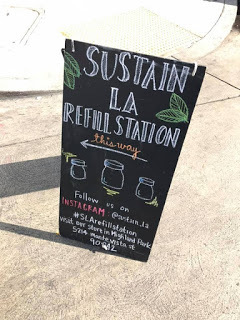 SUSTAIN
LA
REFILL STATION
this way
Follow us on
INSTAGRAM @sustain.la
#SLArefillstation
visit our store in Highland Park
5204 monte vista st
90042